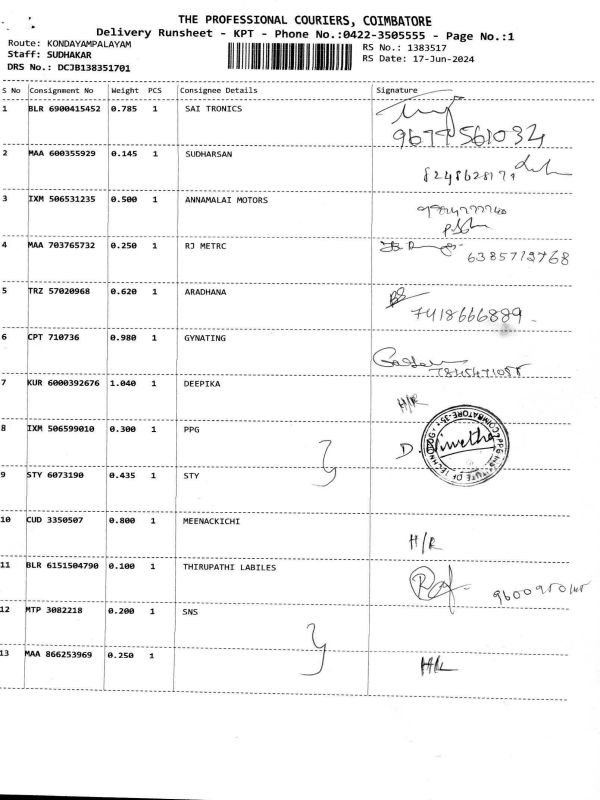 THE PROFESSIONAL COURIERS, COIMBATORE
Delivery Runsheet - KPT - Phone No.:0422-3505555 - Page No.:1
Route: KONDAYAMPALAYAM RS No.: 1383517
Staff: SUDHAKAR RS Date: 17-Jun-2024
DRS No.: DCJB138351701
S No Consignment No Weight PCS Consignee Details Signature
1 BLR 6900415452 0.785 1 SAI TRONICS
9677561034
2 MAA 600355929 0.145 1 SUDHARSAN
8248628171
3 IXM 506531235 0.500 1 ANNAMALAI MOTORS
4 MAA 703765732 0.250 1 RJ METRC
6385712768
5 TRZ 57020968 0.620 1 ARADHANA
7418666889
6 CPT 710736 0.980 1 GYNATING
7 KUR 6000392676 1.040 1 DEEPIKA
H/R
8 IXM 506599010 0.300 1 PPG
D. Nivetha
PPG INSTITUTE OF TECHNOLOGY COIMBATORE-35
9 STY 6073190 0.435 1 STY
10 CUD 3350507 0.800 1 MEENACKICHI
H/R
11 BLR 6151504790 0.100 1 THIRUPATHI LABILES
12 MTP 3082218 0.200 1 SNS
13 MAA 866253969 0.250 1
H/R